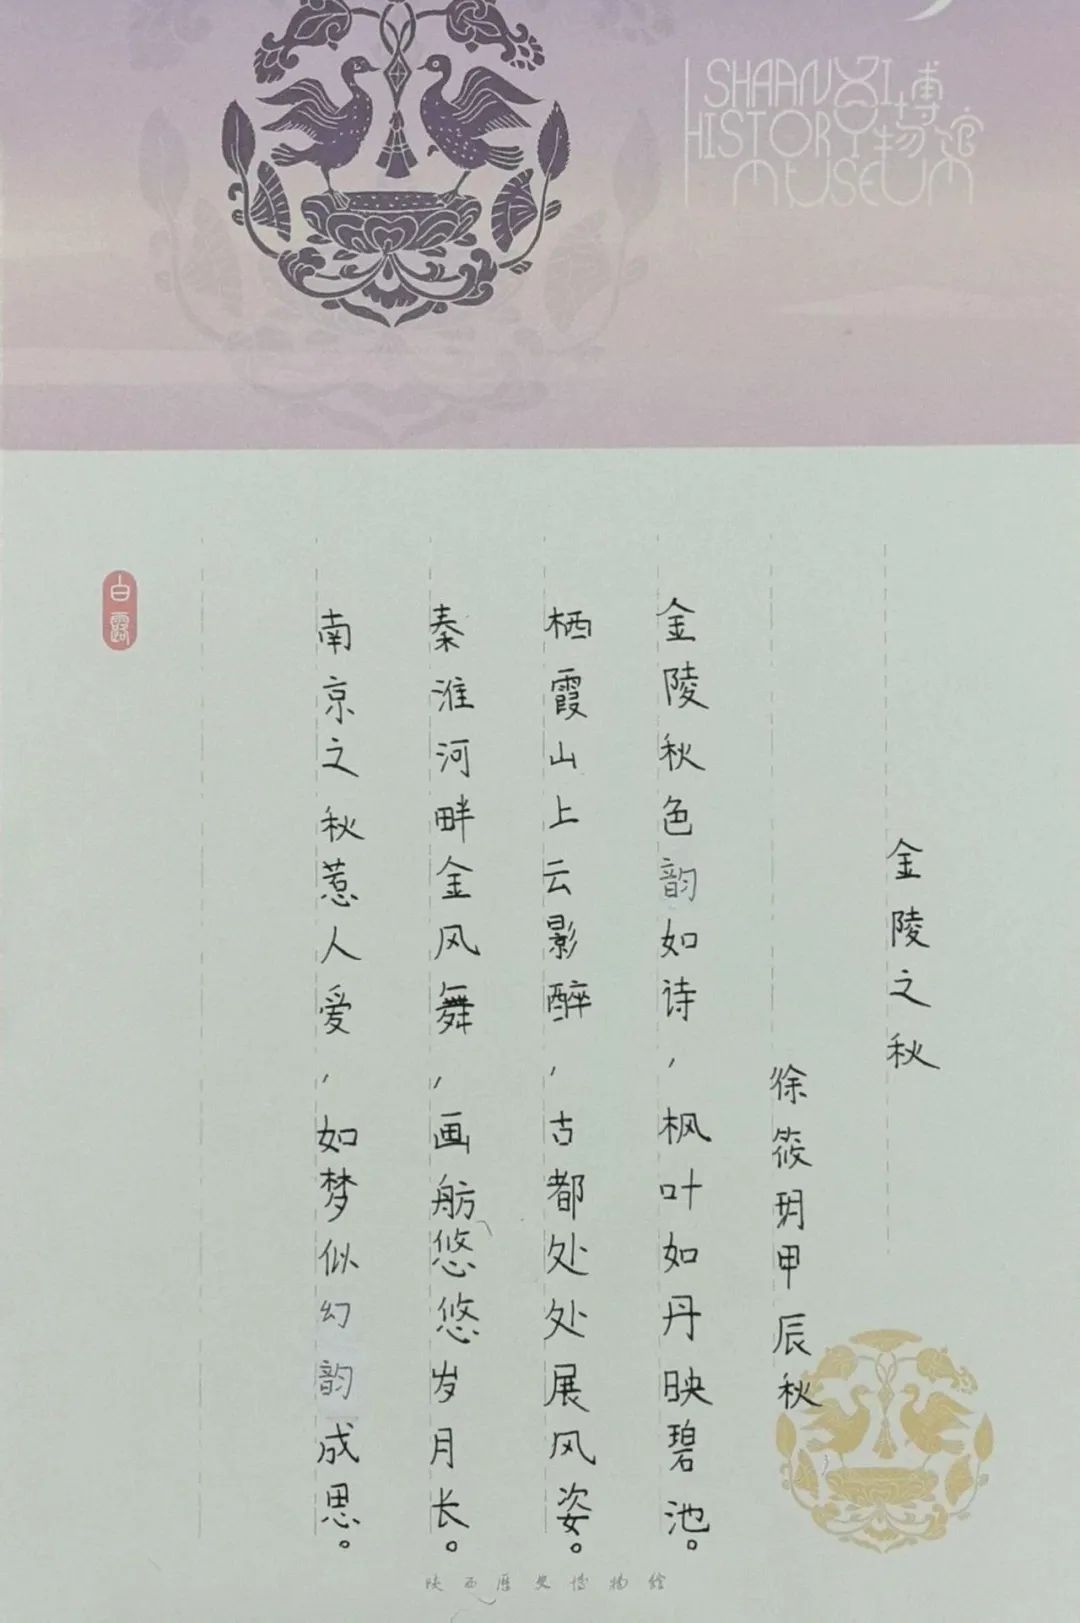 SHAANXI博
HISTORY物馆
MUSEUM
金陵之秋
徐筱玥甲辰秋
金陵秋色韵如诗，枫叶如丹映碧池。
栖霞山上云影醉，古都处处展风姿。
秦淮河畔金风舞，画舫悠悠岁月长。
南京之秋惹人爱，如梦似幻韵成思。
白露
陕西历史博物馆